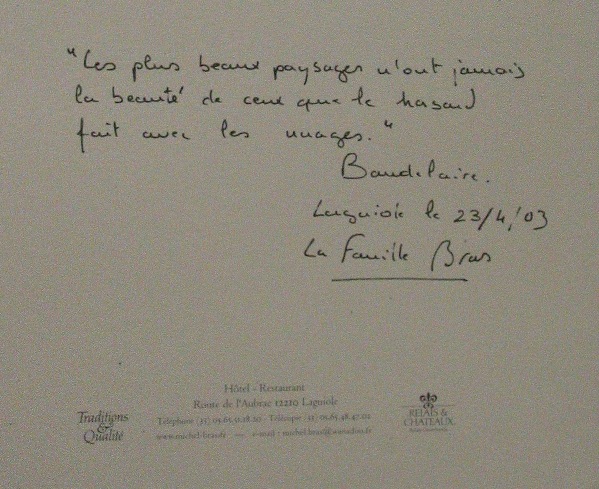 "Les plus beaux paysages n'ont jamais
la beauté de ceux que le hasard
fait avec les nuages."
Baudelaire.
Laguiole le 23/4/03
La Famille Bras
Hôtel - Restaurant
Route de l'Aubrac 12210 Laguiole
Téléphone (33) 05.65.51.18.20 - Télécopie (33) 05.65.48.47.02
www.michel-bras.fr — e-mail : michel.bras@wanadoo.fr
Traditions
&
Qualité
RELAIS &
CHATEAUX